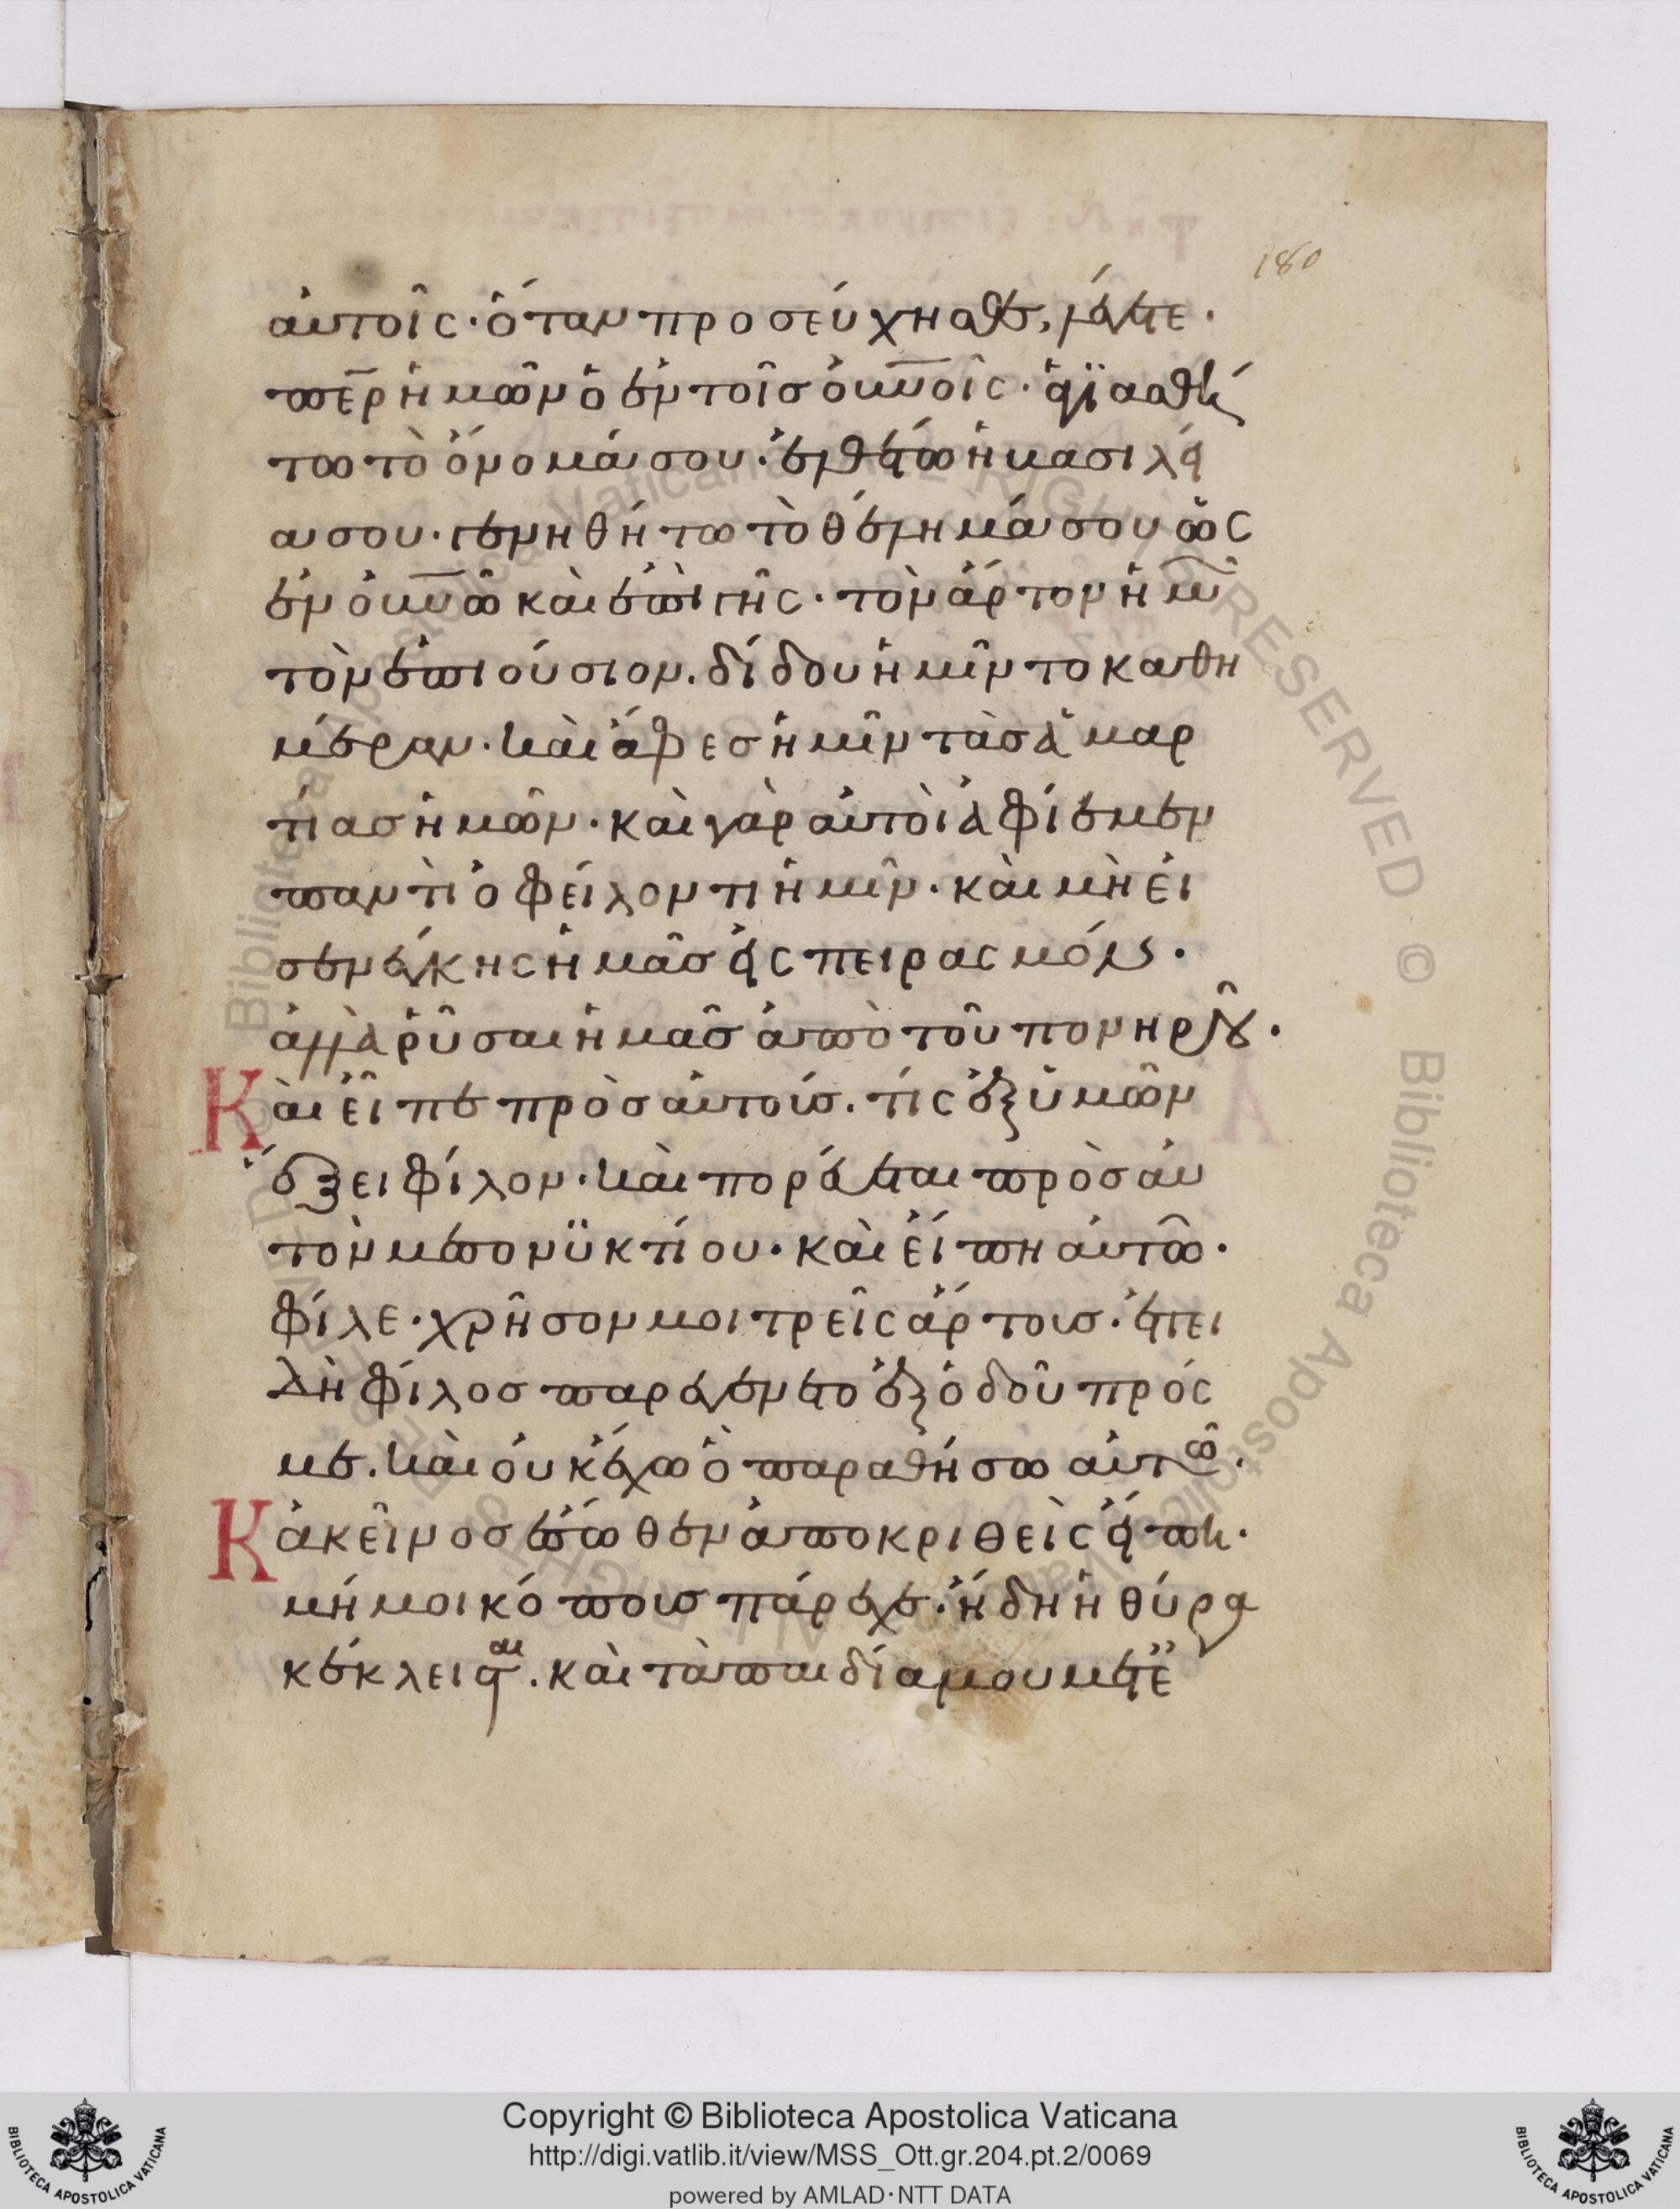 180
αὐτοῖς· ὅταν προσεύχησθε, λέγετε·
πε̅ρ ἡμῶν ὁ ἐν τοῖς οὐν̅οῖς· ἁγϊασθή
τω τὸ ὄνομά σου· ἐλθέτω ἡ βασιλεί
α σου· γενηθήτω τὸ θέλημά σου ὡς
ἐν οὐν̅ῶ καὶ ἐπὶ γῆς· τὸν ἄρτον ἡμῶ
τὸν ἐπιούσιον. δίδου ἡμῖν το καθη
μέραν· καὶ ἄφες ἡμῖν τὰς ἁμαρ
τίας ἡμῶν· καὶ γὰρ αὐτοὶ ἀφίεμεν
παντὶ ὀφείλοντι ἡμῖν· καὶ μὴ εἰ
σενέγκης ἡμᾶς εἰς πειρασμόν·
ἀλλὰ ῥῦσαι ἡμᾶς ἀπὸ τοῦ πονηροῦ·
Καὶ εἶπε πρὸς αὐτούς. τίς ἐξ ὑμῶν
ἕξει φίλον· καὶ πορεύεται πρὸς αὐ
τὸν μεσονϋκτίου· καὶ εἴπη αὐτῶ·
φίλε· χρῆσον μοι τρεῖς ἄρτους· ἐπει
δὴ φίλος παρεγένετο ἐξ ὁδοῦ πρός
με. καὶ οὐκ ἔχω ὃ παραθήσω αὐτῶ.
Κἀκεῖνος ἔσωθεν ἀποκριθεὶς εἴπη·
μή μοι κόπους πάρεχε· ἤδη ἡ θύρα
κέκλεισται. καὶ τὰ παιδία μου μετ ἐ
Copyright © Biblioteca Apostolica Vaticana
http://digi.vatlib.it/view/MSS_Ott.gr.204.pt.2/0069
powered by AMLAD·NTT DATA
BIBLIOTECA APOSTOLICA VATICANA
BIBLIOTECA APOSTOLICA VATICANA